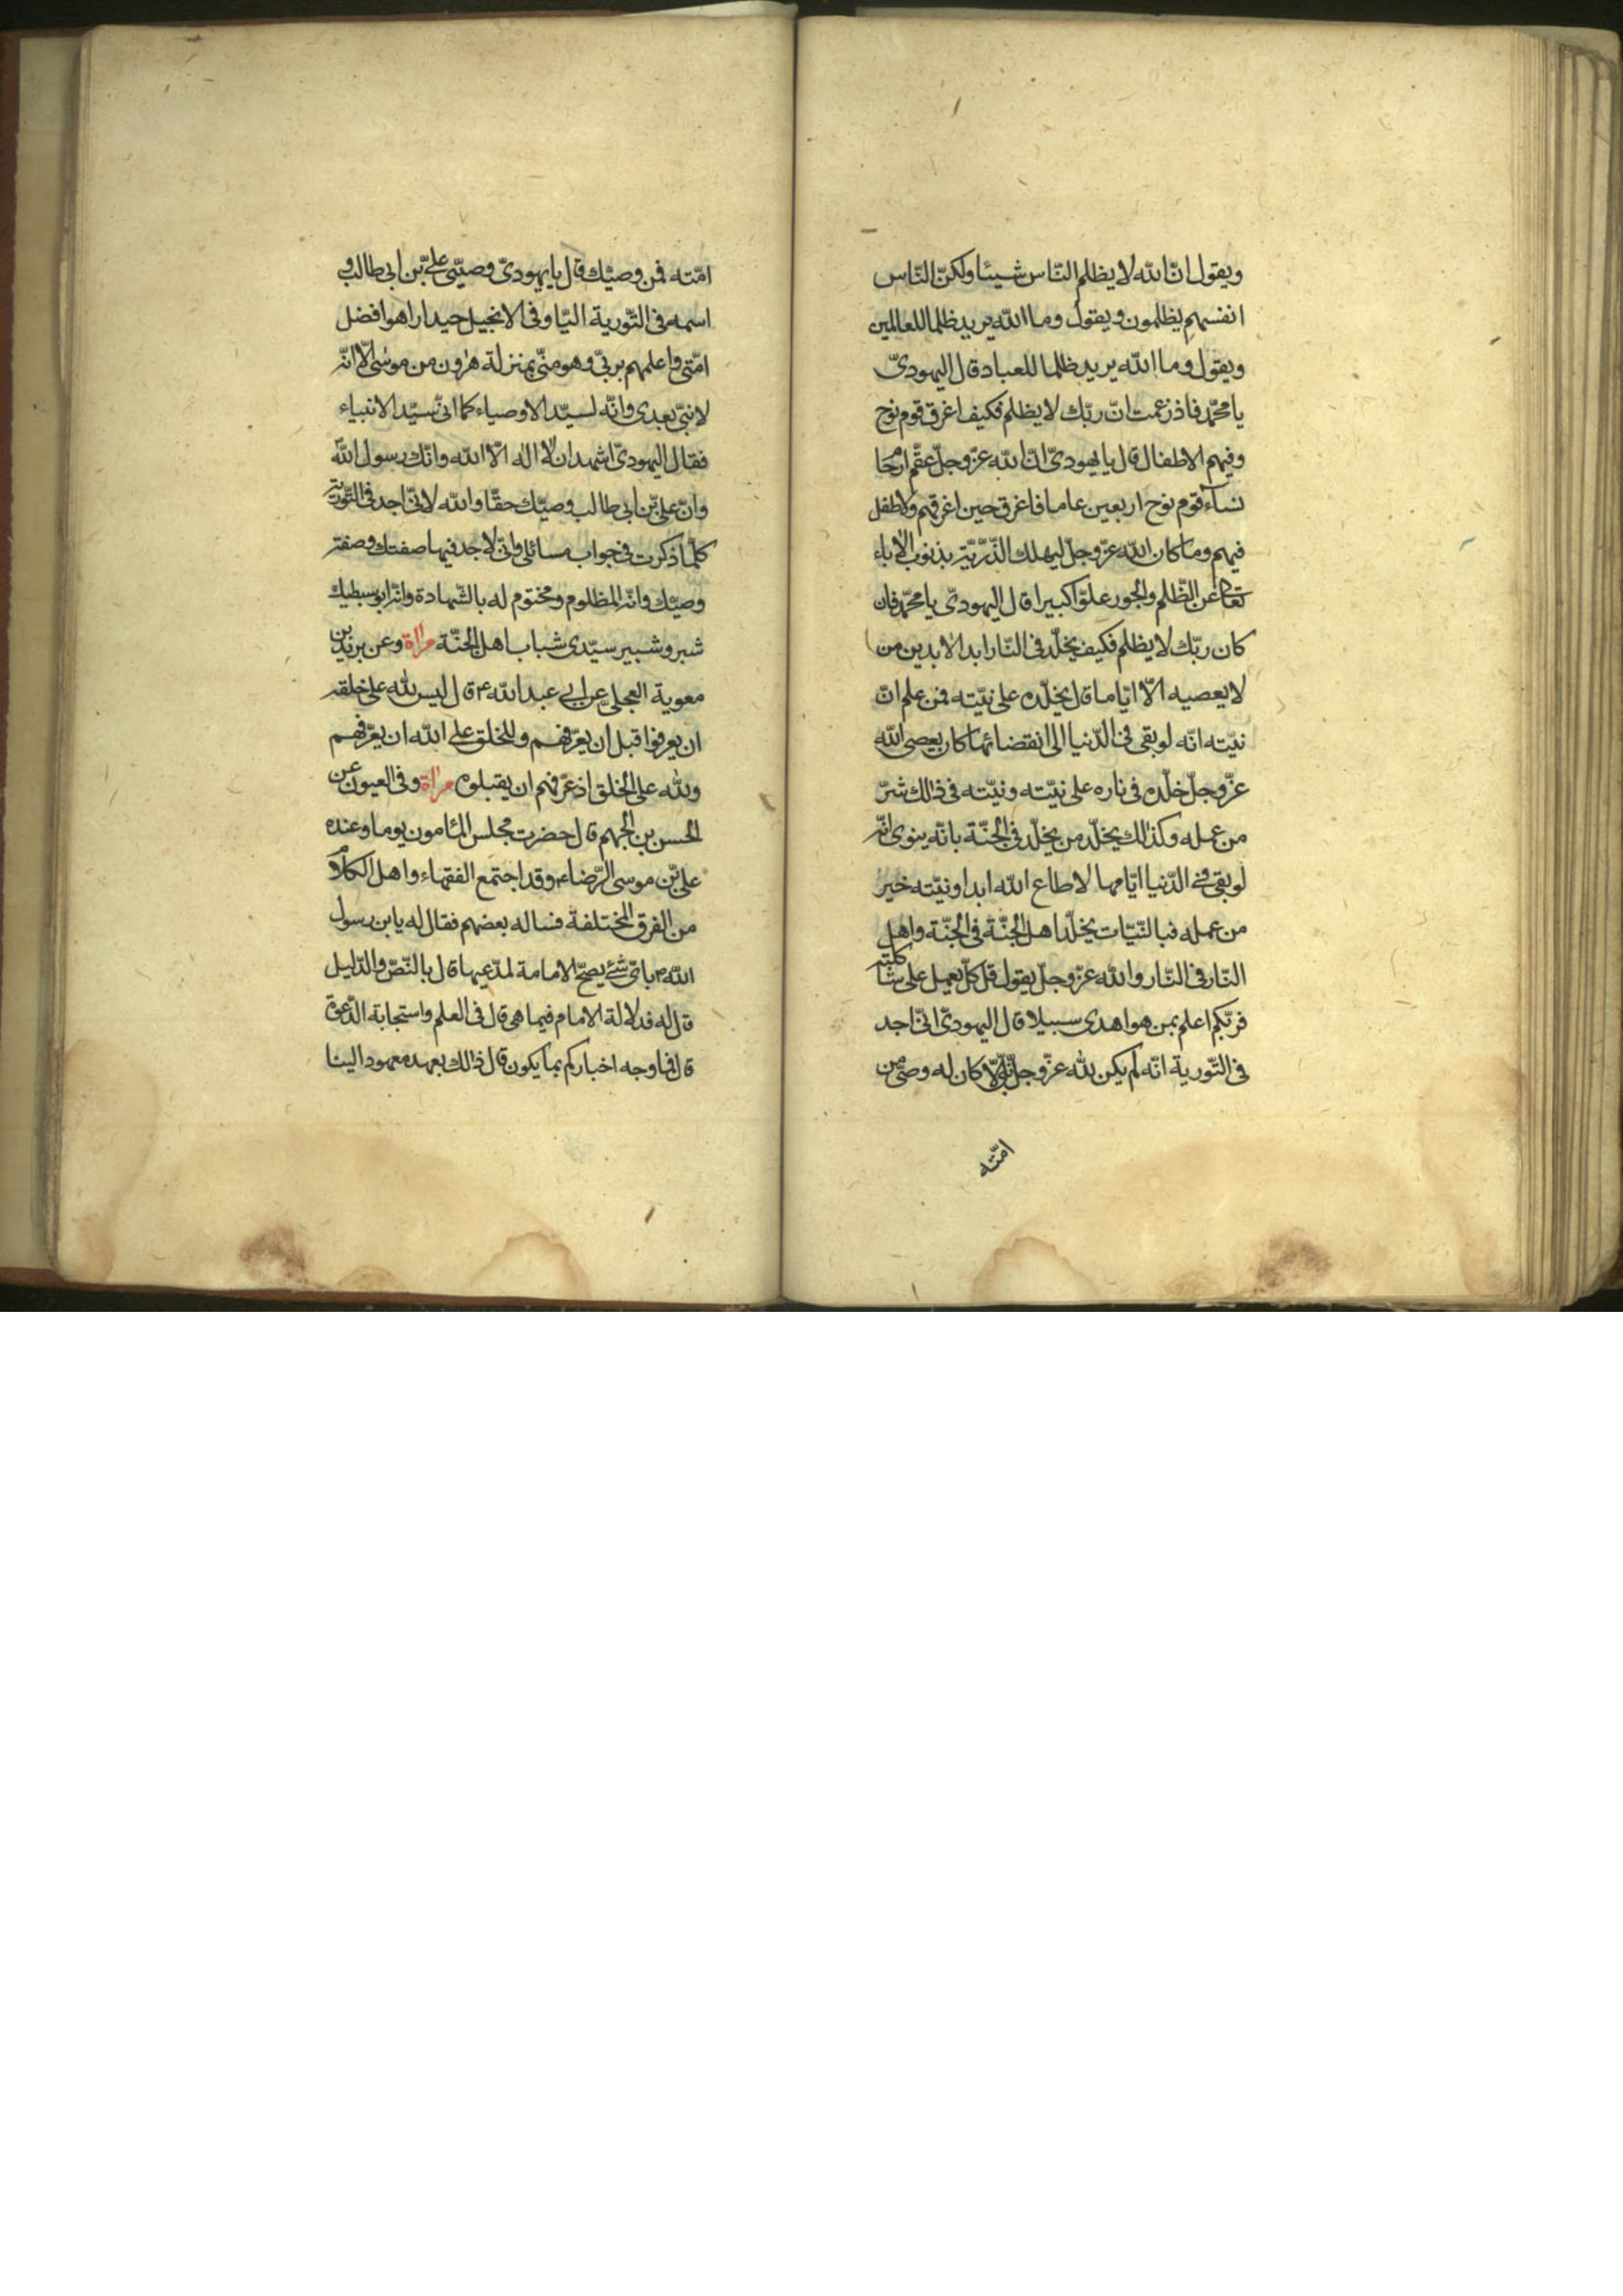 ويقول انّ الله لا يظلم النّاس شيئا ولكنّ النّاس
انفسهم يظلمون ويقول وما الله يريد ظلما للعالمين
ويقول وما الله يريد ظلما للعباد قال اليهودىّ
يا محمّد فاذ زعمت انّ ربّك لا يظلم فكيف اغرق قوم نوح
وفيهم الاطفال قال يا يهودىّ انّ الله عزّ وجلّ عقّم ارحام
نساء قوم نوح اربعين عاما فاغرق حين اغرقهم ولا طفل
فيهم وما كان الله عزّ وجلّ ليهلك الذّرّيّة بذنوب الاباء
تعالى عن الظّلم والجور علوّا كبيرا قال اليهودىّ يا محمّد فان
كان ربّك لا يظلم فكيف يخلّد فى النّار ابد الابدين من
لا يعصيه الّا ايّاما قال يخلّده على نيّته فمن علم انّ
نيّته انّه لو بقى فى الدّنيا الى انقضائها كان يعصى الله
عزّ وجلّ خلّده فى ناره على نيّته ونيّته فى ذالك شرّ
من عمله وكذالك يخلّد من يخلّد فى الجنّة بانّه ينوى انّه
لو بقى فى الدّنيا ايّامها لاطاع الله ابدا ونيّته خير
من عمله فبالنّيّات يخلّد اهل الجنّة فى الجنّة واهل
النّار فى النّار والله عزّ وجلّ يقول قل كلّ يعمل على شاكلته
فربّكم اعلم بمن هو اهدى سبيلا قال اليهودىّ انّى اجد
فى التّورية انّه لم يكن لله عزّ وجلّ نبىّ الّا كان له وصىّ من
امّته
امّته فمن وصيّك قال يا يهودىّ وصيّى علىّ بن ابى طالب و
اسمه فى التّورية اليّا وفى الانجيل حيدار اهو افضل
امّتى واعلمهم بربّى وهو منّى بمنزلة هرون من موسى الّا انّه
لا نبىّ بعدى وانّه لسيّد الاوصياء كما انّى سيّد الانبياء
فقال اليهودىّ اشهد ان لا اله الّا الله وانّك رسول الله
وانّ علىّ بن ابى طالب وصيّك حقّا والله لانّى اجد فى التّورية
كلّما ذكرت فى جواب مسائلى وانّى لاجد فيها صفتك وصفة
وصيّك وانّه المظلوم ومختوم له بالشّهادة وانّه ابو سبطيك
شبر وشبير سيّدى شباب اهل الجنّة مراة وعن بريد بن
معوية العجلىّ عن ابى عبد الله ع قال ليس لله على خلقه
ان يعرفوا قبل ان يعرّفهم وللخلق على الله ان يعرّفهم
ولله على الخلق اذ عرّفهم ان يقبلوه مراة وفى العيون عن
الحسن بن الجهم قال حضرت مجلس المأمون يوما وعنده
علىّ بن موسى الرّضا ع وقد اجتمع الفقهاء واهل الكلام
من الفرق المختلفة فساله بعضهم فقال له يا بن رسول
الله ص باىّ شئ يصحّ الامامة لمدّعيها قال بالنّصّ والدّليل
قال له فدلالة الامام فيما هى قال فى العلم واستجابة الدّعوة
قال فما وجه اخباركم بما يكون قال ذالك بعهد معهود الينا